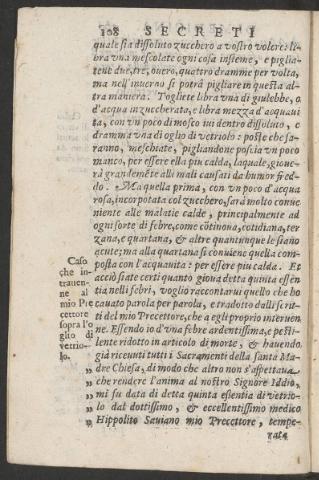 108 SECRETI
quale sia dissoluto zucchero a vostro volere: li
bra vna mescolate ogni cosa insieme, e piglia-
tene due, tre, ouero, quattro dramme per volta,
ma nell'inuerno si potrà pigliare in questa al-
tra maniera. Togliete libra vna di giulebbe, o
d'acqua inzuccherata, e libra mezza d'acquaui
ta, con vn poco di mosco iui dentro dissoluto, e
dramma vna di oglio di vetriolo: poste che sa-
ranno, meschiate, pigliandone poscia vn poco
manco, per essere ella piu calda, laquale, gioue-
rà grandemẽte alli mali causati da humor fred-
do. Ma quella prima, con vn poco d'acqua
rosa, incorpotata col zucchero, sarà molto conue
niente alle malatie calde, principalmente ad
ogni sorte di febre, come cõtinoua, cotidiana, ter
zana, e quartana, & altre quantunque le siano
acute; ma alla quartana si conuiene quella com-
posta con l'acquauita: per essere piu calda. Et
acciò siate certi quanto gioua detta quinta essen
tia nelli febri, voglio raccontarui quello che ho
cauato parola per parola, e tradotto dalli scrit-
ti del mio Precettore, che a egli proprio interuen
ne. Essendo io d'vna febre ardentissima, e pesti-
lente ridotto in articolo di morte, & hauendo
già riceuuti tutti i Sacramenti della santa Ma-
dre Chiesa, di modo che altro non s'aspettaua
che rendere l'anima al nostro Signore Iddio,
mi fu data di detta quinta essentia di vetrio-
lo dal dottissimo, & eccellentissimo medico
Hippolito Sauiano mio Precettore, tempe-
rata
Caso
che in-
trauen-
ne al
mio Pre
cettore
sopra l'o
glio di
vetrio-
lo.